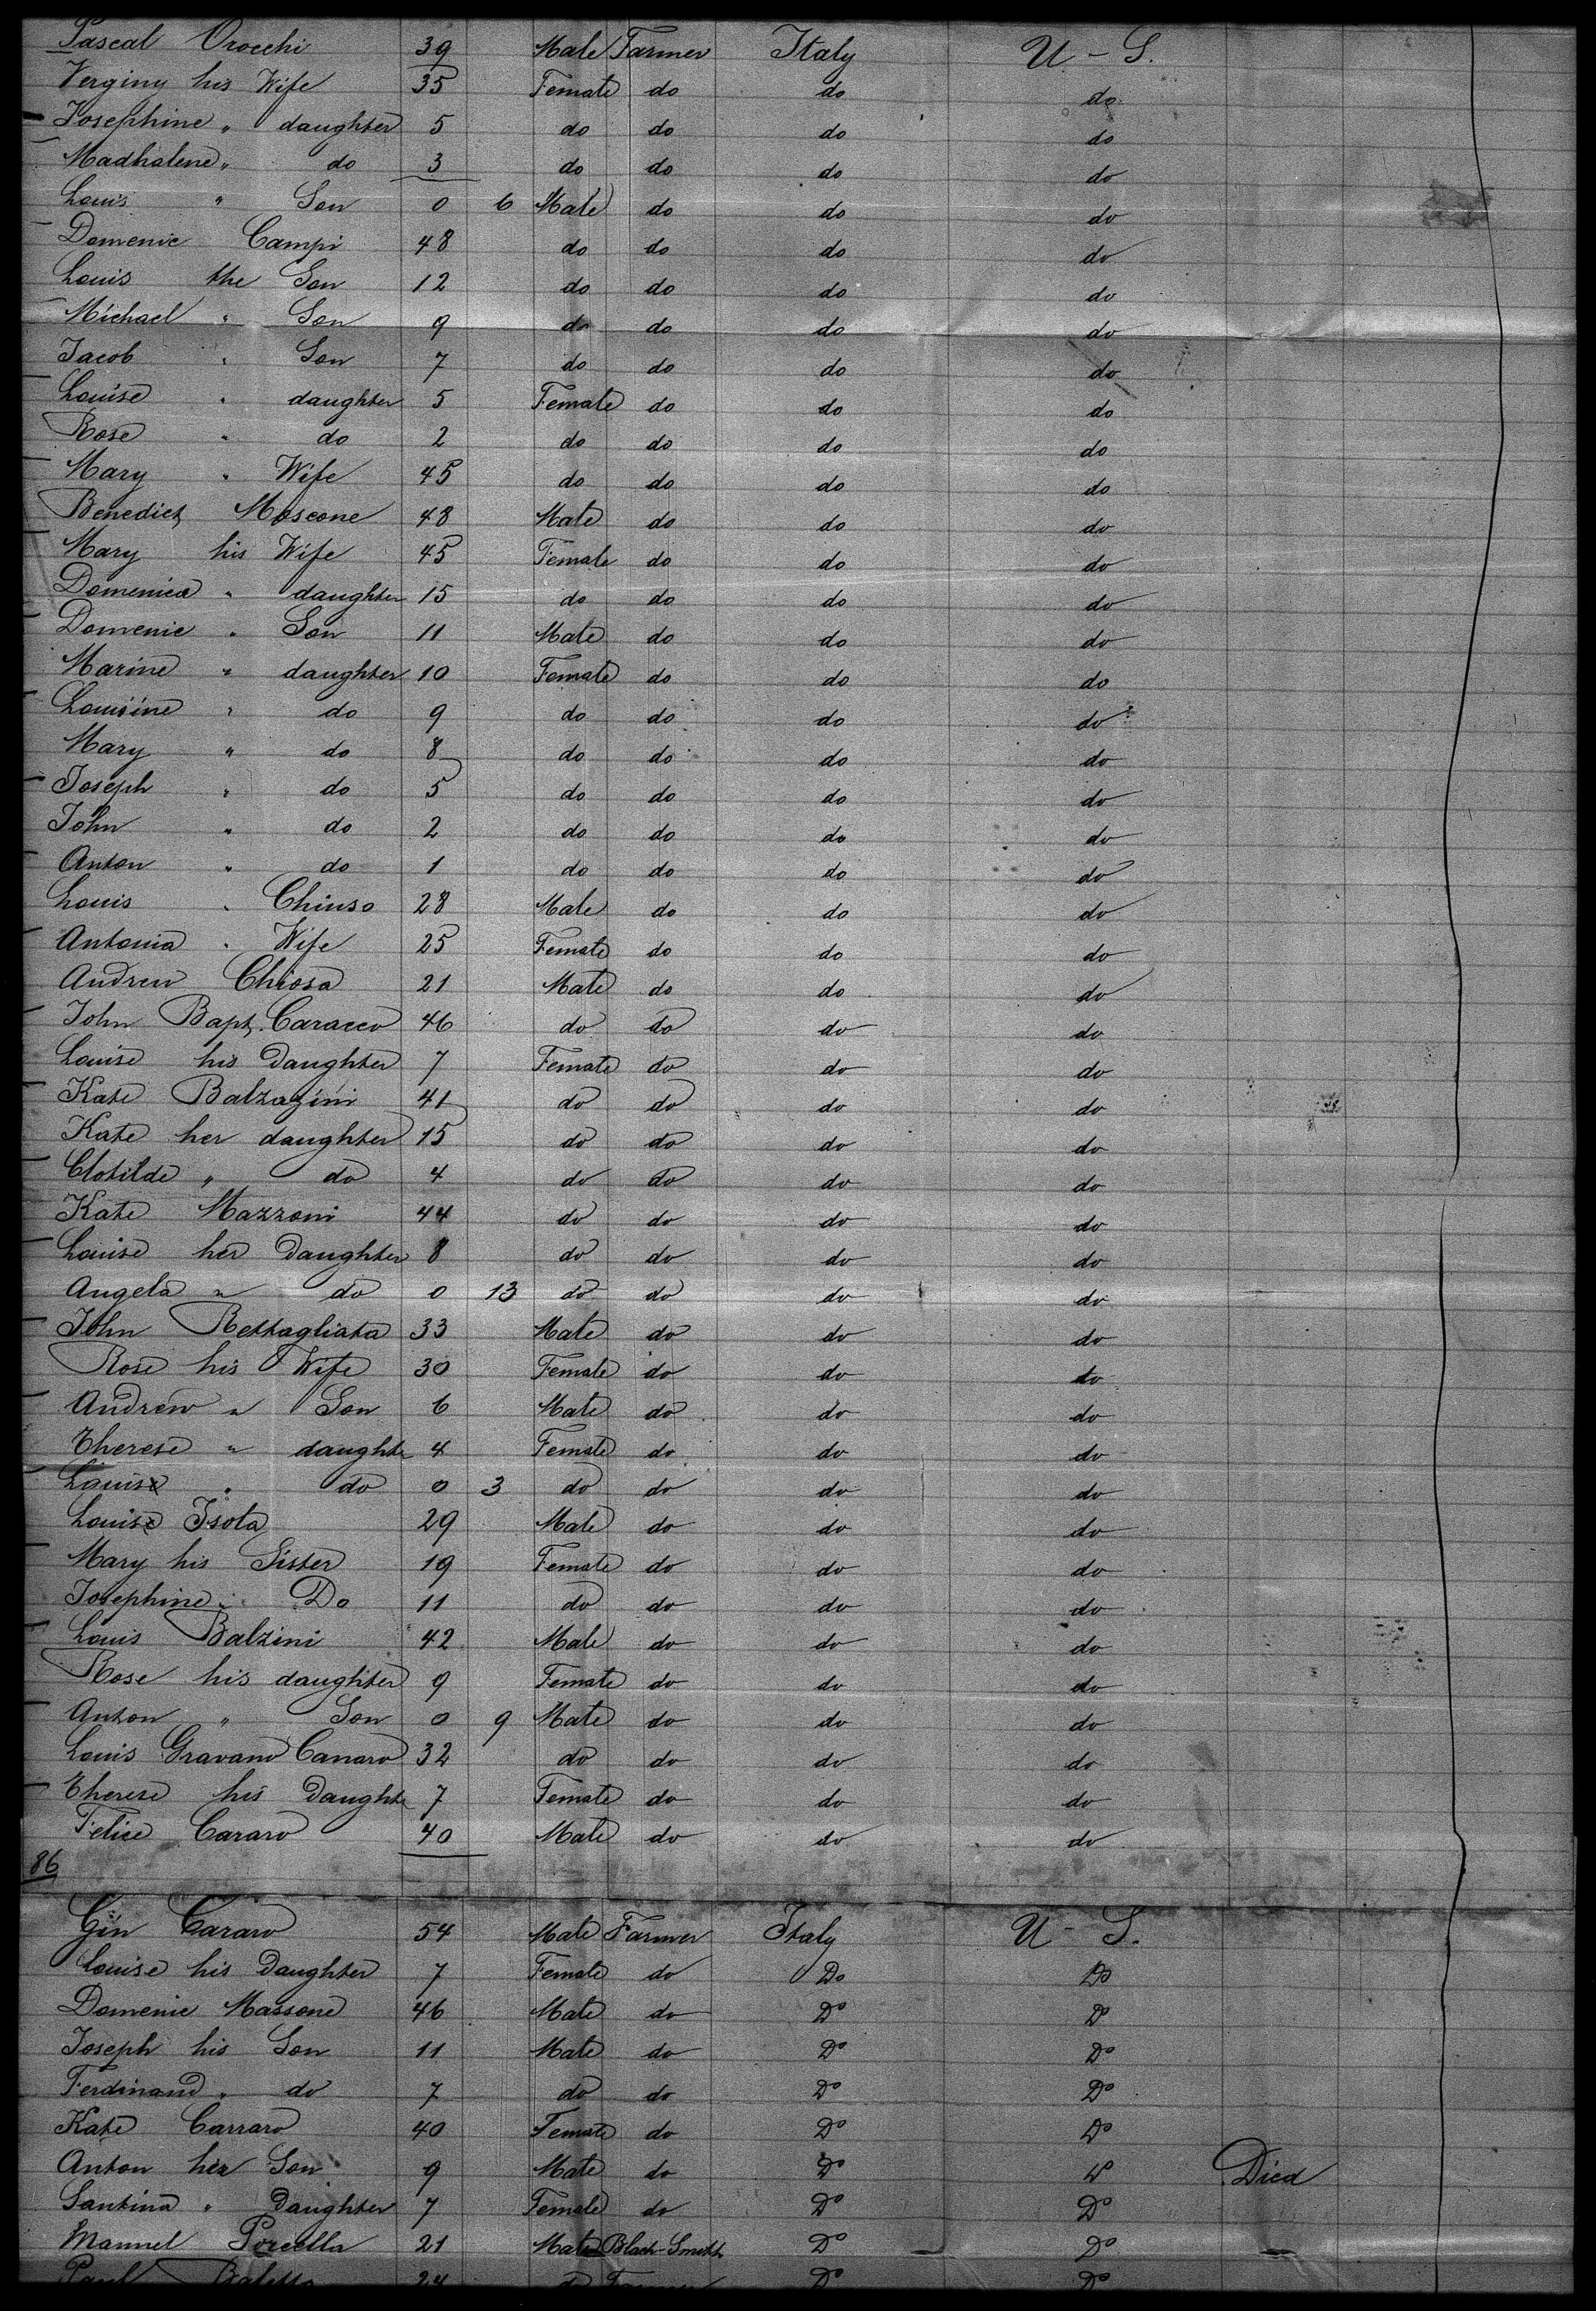 Pascal Orocchi 39 Male Farmer Italy U-S.
Verginy his Wife 35 Female do do do
Josephine " daughter 5 do do do do
Madhalene " do 3 do do do do
Louis " Son 0 6 Male do do do
Domenic Campi 48 do do do do
Louis the Son 12 do do do do
Michael " Son 9 do do do do
Jacob " Son 7 do do do do
Louise " daughter 5 Female do do do
Rose " do 2 do do do do
Mary " Wife 45 do do do do
Benedict Moscone 48 Male do do do
Mary his Wife 45 Female do do do
Domenica " daughter 15 do do do do
Domenic " Son 11 Male do do do
Marine " daughter 10 Female do do do
Louisine " do 9 do do do do
Mary " do 8 do do do do
Joseph " do 5 do do do do
John " do 2 do do do do
Anton " do 1 do do do do
Louis " Chiuso 28 Male do do do
Antonia " Wife 25 Female do do do
Andrew Chiosa 21 Male do do do
John Bapt. Caracco 46 do do do do
Louise his Daughter 7 Female do do do
Kate Balzagini 41 do do do do
Kate her daughter 15 do do do do
Clotilde " do 4 do do do do
Kate Mazzoni 44 do do do do
Louise her Daughter 8 do do do do
Angela " do 0 13 do do do do
John Rettagliata 33 Male do do do
Rose his Wife 30 Female do do do
Andrew " Son 6 Male do do do
Therese " daughte 4 Female do do do
Louise " do 0 3 do do do do
Louis Isola 29 Male do do do
Mary his Sister 19 Female do do do
Josephine " Do 11 do do do do
Louis Balzini 42 Male do do do
Rose his daughter 9 Female do do do
Anton " Son 0 9 Male do do do
Louis Gravano Canaro 32 do do do do
Therese his Daughte 7 Female do do do
Felice Cararo 40 Male do do do
86
Gin Cararo 54 Male Farmer Italy U-S.
Louise his Daughter 7 Female do Do Do
Domenic Massone 46 Male do Do Do
Joseph his Son 11 Male do Do Do
Ferdinand " do 7 do do Do Do
Kate Carraro 40 Female do Do Do
Anton her Son 9 Male do Do Do Died
Santina " Daughter 7 Female do Do Do
Manuel Porcella 21 Male Black-Smith Do Do
Paul 24 do Farmer Do Do